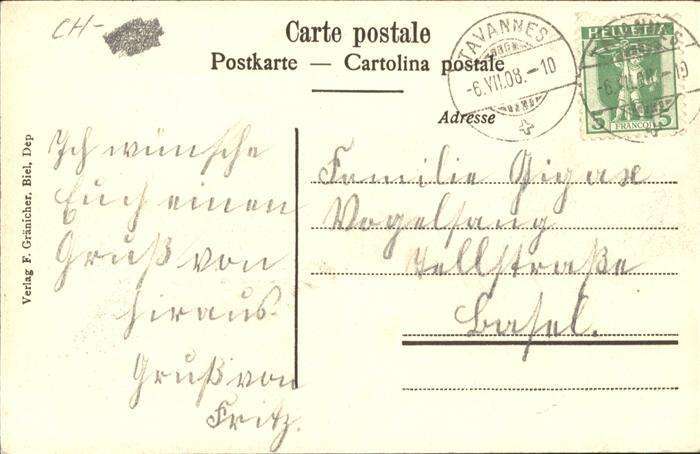 CH-
Carte postale
Postkarte — Cartolina postale
Adresse
TAVANNES
-6.VII.08.-10
HELVETIA
5 FRANCO 5
Verlag F. Gränicher, Biel, Dep
Ich wünsche
Euch einen
Gruß von
hiraus.
Gruß von
Fritz.
Familie Gigax
Vogelsang
Tellstraße
Basel.